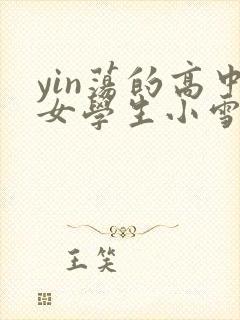 yin蕩的高中
女學生小雪
王笑